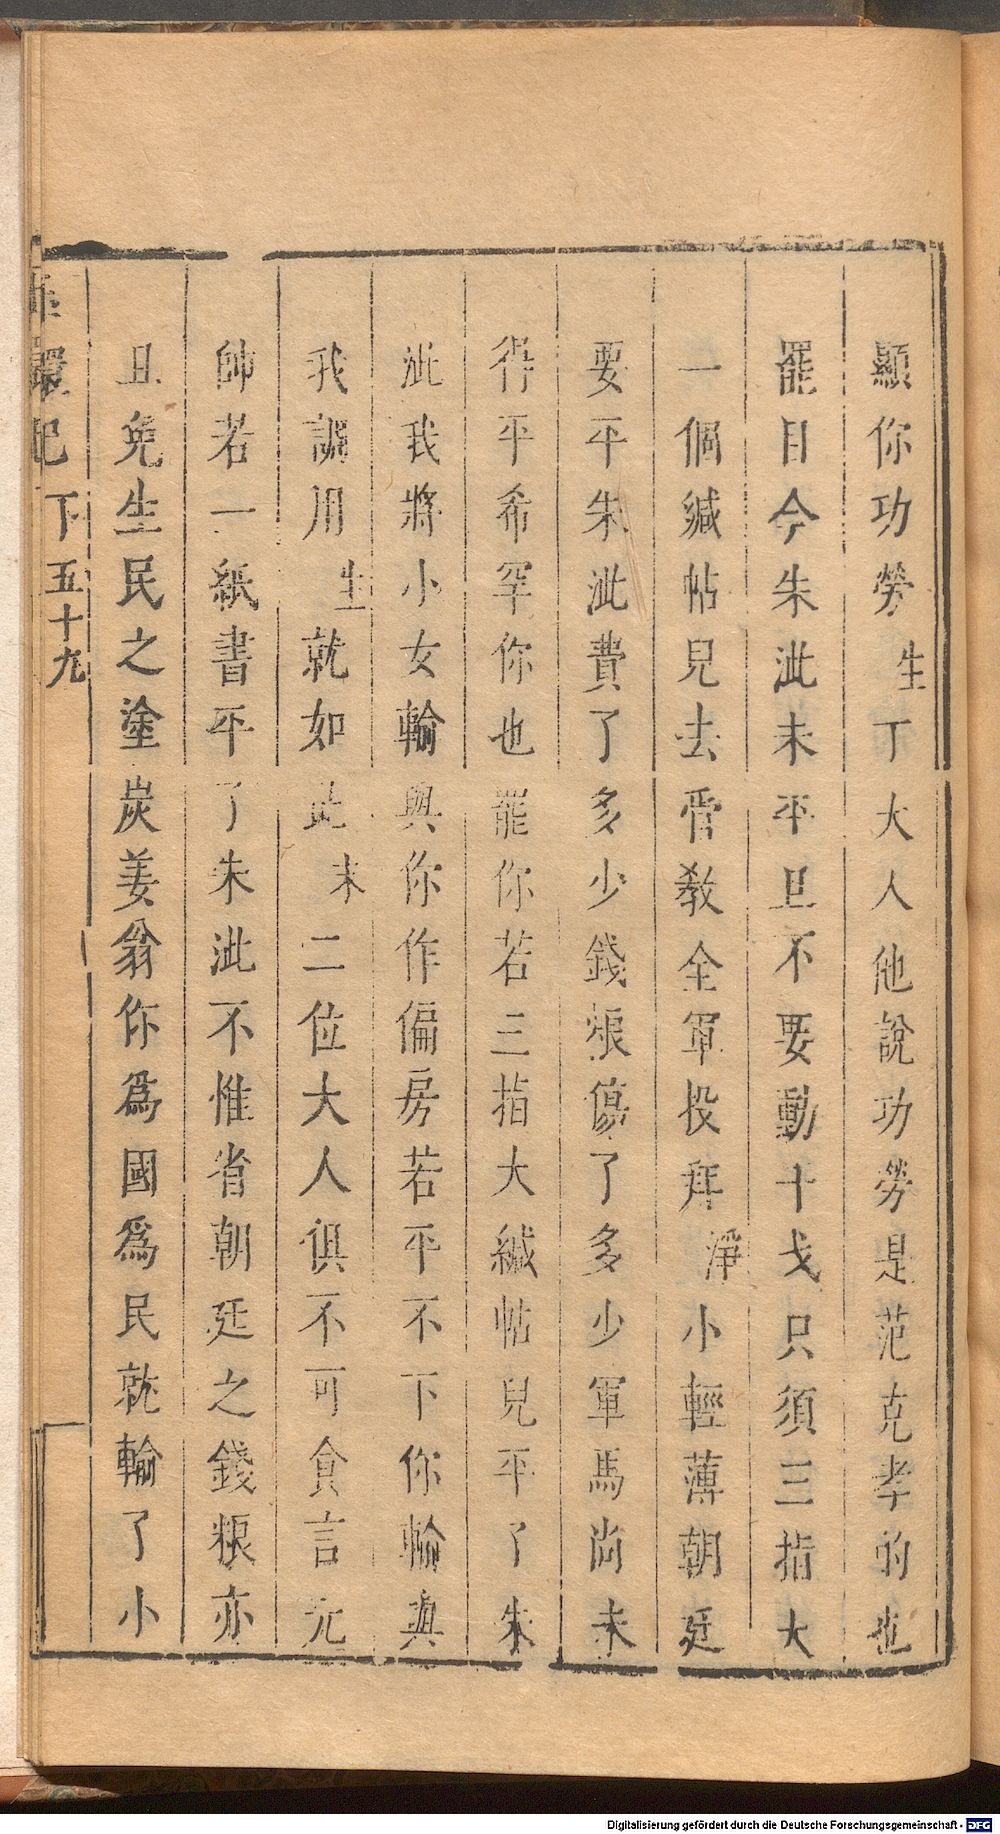 顯你功勞生丁大人他說功勞是范克孝的也
罷目今朱泚未平且不要動干戈只須三指大
一個緘帖兒去管教全軍投拜淨小輕薄朝廷
要平朱泚費了多少錢粮傷了多少軍馬尚未
得平希罕你也罷你若三指大緘帖兒平了朱
泚我將小女輸與你作偏房若平不下你輸與
我調用生就如此末二位大人俱不可食言元
帥若一紙書平了朱泚不惟省朝廷之錢粮亦
且免生民之塗炭姜翁你為國為民就輸了小
還記 下 五十九
Digitalisierung gefördert durch die Deutsche Forschungsgemeinschaft - DFG